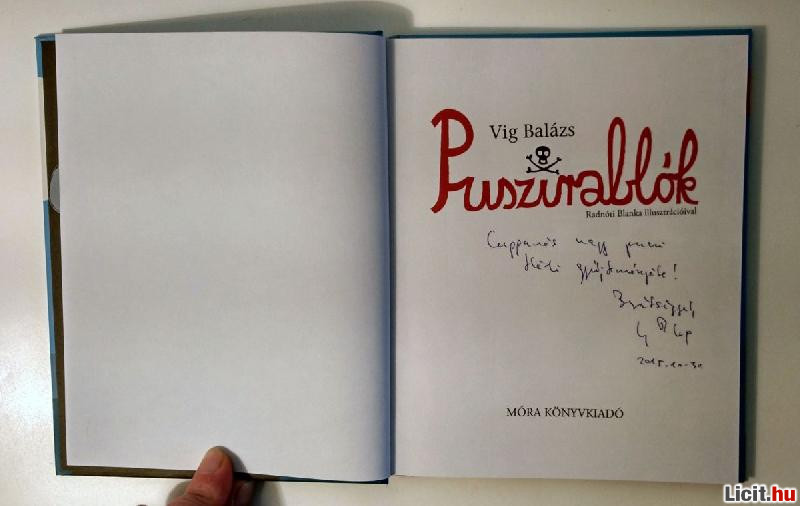 Vig Balázs
Pusziralók
Radnóti Blanka illusztrációival
Cuppanós nagy puszi
gyűjteményébe!
Barátsággal,
MÓRA KÖNYVKIADÓ
Licit.hu